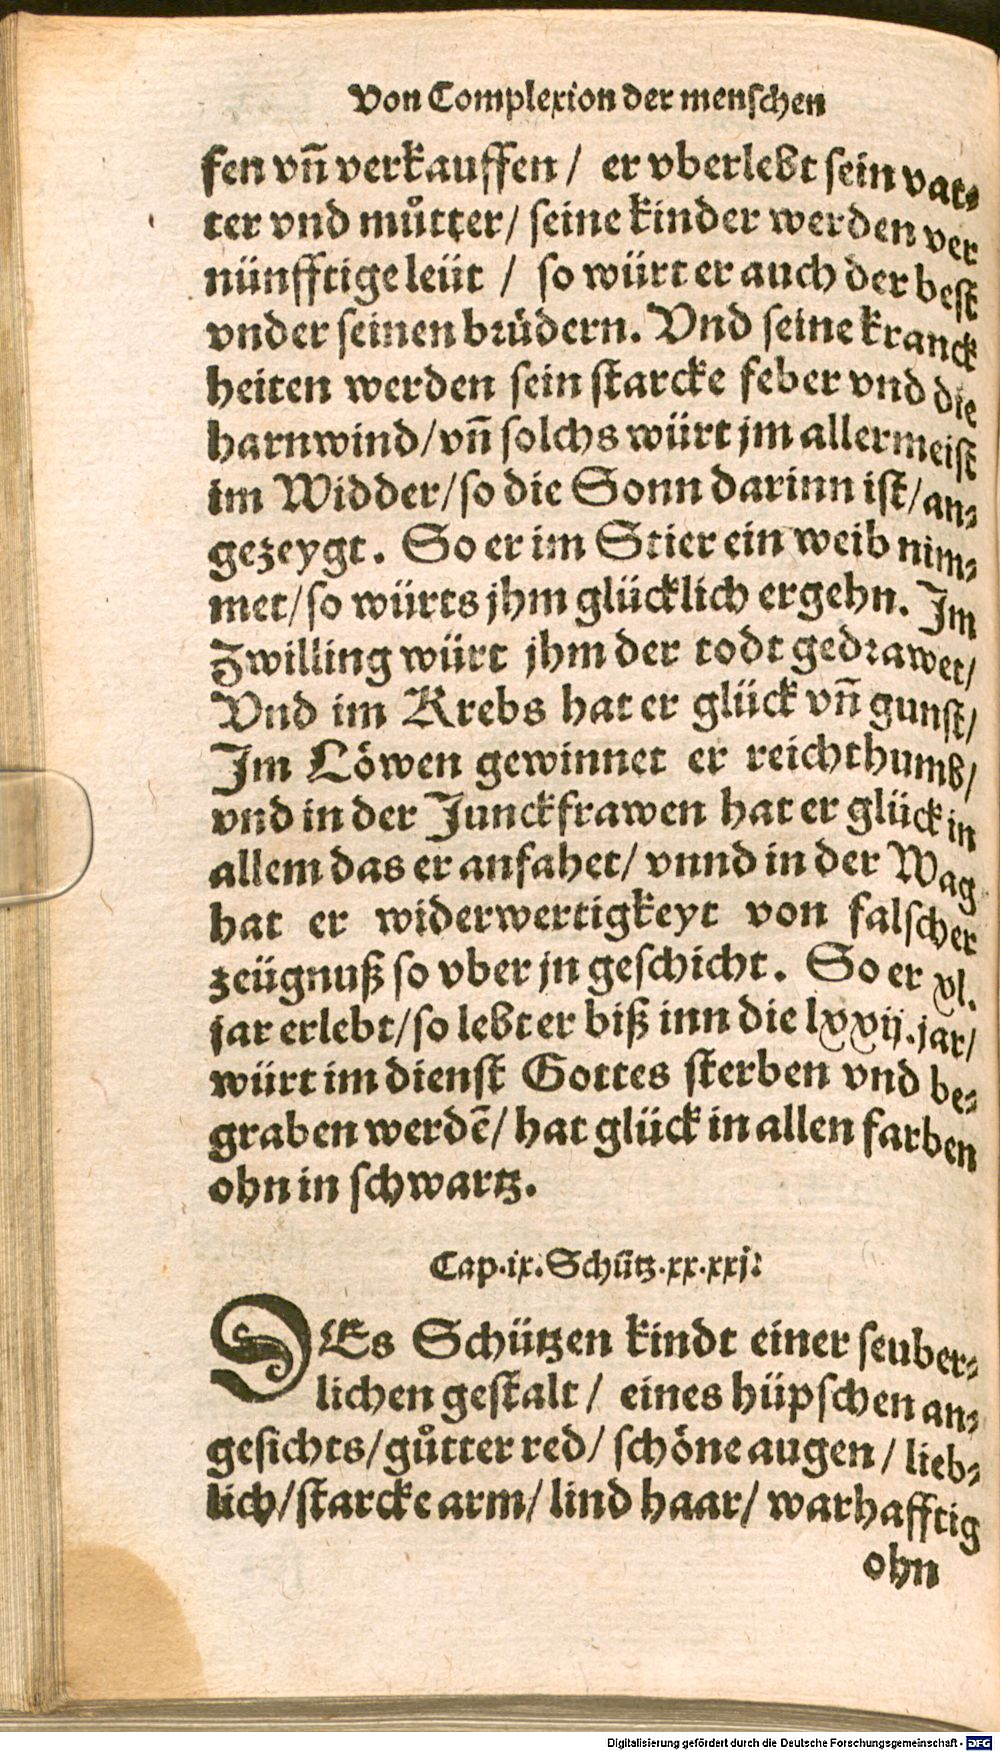 Von Complexion der menschen
fen vñ verkauffen / er vberlebt sein vat⸗
ter vnd můtter / seine kinder werden ver
nünfftige leüt / so würt er auch der best
vnder seinen brüdern. Vnd seine kranck
heiten werden sein starcke feber vnd die
harnwind / vñ solchs würt jm allermeist
im Widder / so die Sonn darinn ist / an⸗
gezeygt. So er im Stier ein weib nim⸗
met / so würts jhm glücklich ergehn. Im
Zwilling würt jhm der todt gedrawet /
Vnd im Krebs hat er glück vñ gunst /
Im Löwen gewinnet er reichthumß /
vnd in der Junckfrawen hat er glück in
allem das er anfahet / vnnd in der Wag
hat er widerwertigkeyt von falscher
zeügnuß so vber jn geschicht. So er xl.
jar erlebt / so lebt er biß inn die lxxij. jar /
würt im dienst Gottes sterben vnd be⸗
graben werdẽ / hat glück in allen farben
ohn in schwartz.
Cap. ix. Schütz. xx. xxj.
DEs Schützen kindt einer seuber⸗
lichen gestalt / eines hüpschen an⸗
gesichts / gůtter red / schöne augen / lieb⸗
lich / starcke arm / lind haar / warhafftig
ohn
Digitalisierung gefördert durch die Deutsche Forschungsgemeinschaft - DFG